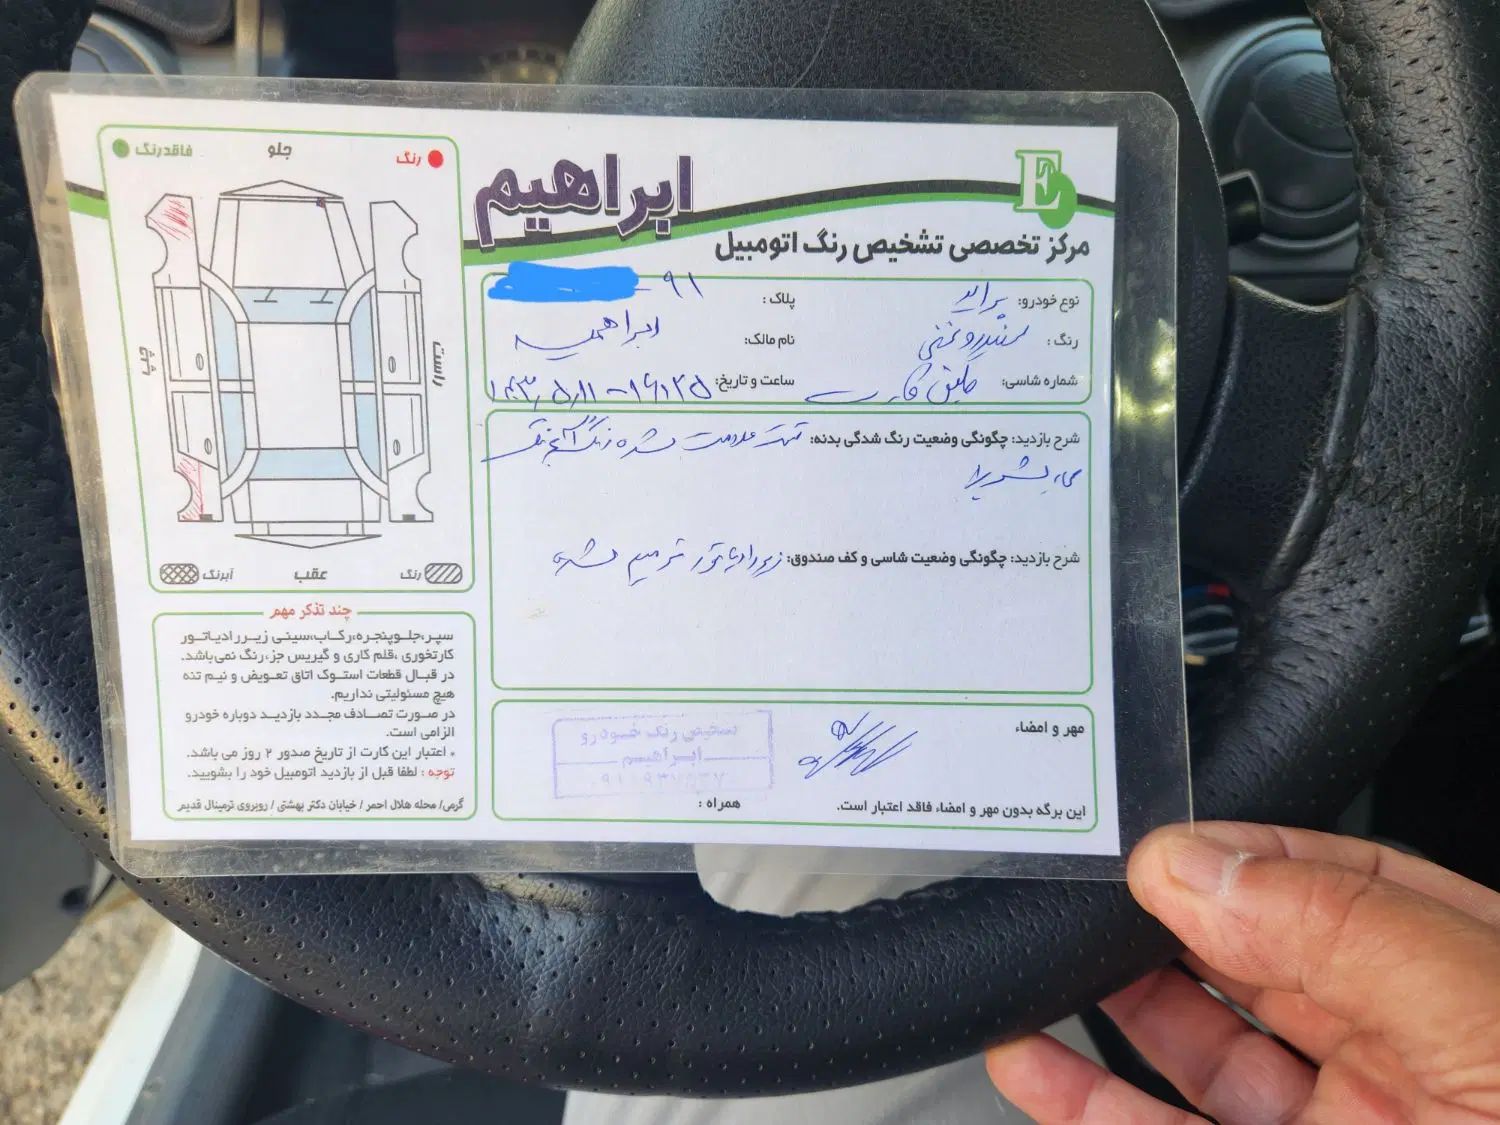 E
ابراهیم
مرکز تخصصی تشخیص رنگ اتومبیل
نوع خودرو: پراید
پلاک: ۹۱
رنگ:
نام مالک: ابراهیمی
شماره شاسی:
ساعت و تاریخ:
شرح بازدید: چگونگی وضعیت رنگ شدگی بدنه: قسمت علامت شده رنگ
شرح بازدید: چگونگی وضعیت شاسی و کف صندوق: زیر رادیاتور ترمیم شده
مهر و امضاء
تشخیص رنگ خودرو
ابراهیم
همراه:
این برگه بدون مهر و امضاء فاقد اعتبار است.
رنگ
جلو
فاقد رنگ
راست
چپ
رنگ
عقب
آبرنگ
چند تذکر مهم
سپر،جلوپنجره،رکاب،سینی زیررادیاتور
کارتخوری ،قلم کاری و گیریس جز،رنگ نمی‌باشد.
در قبال قطعات استوک اتاق تعویض و نیم تنه
هیچ مسئولیتی نداریم.
در صورت تصادف مجدد بازدید دوباره خودرو
الزامی است.
* اعتبار این کارت از تاریخ صدور ۲ روز می باشد.
توجه : لطفا قبل از بازدید اتومبیل خود را بشویید.
گرمی/ محله هلال احمر / خیابان دکتر بهشتی / روبروی ترمینال قدیم